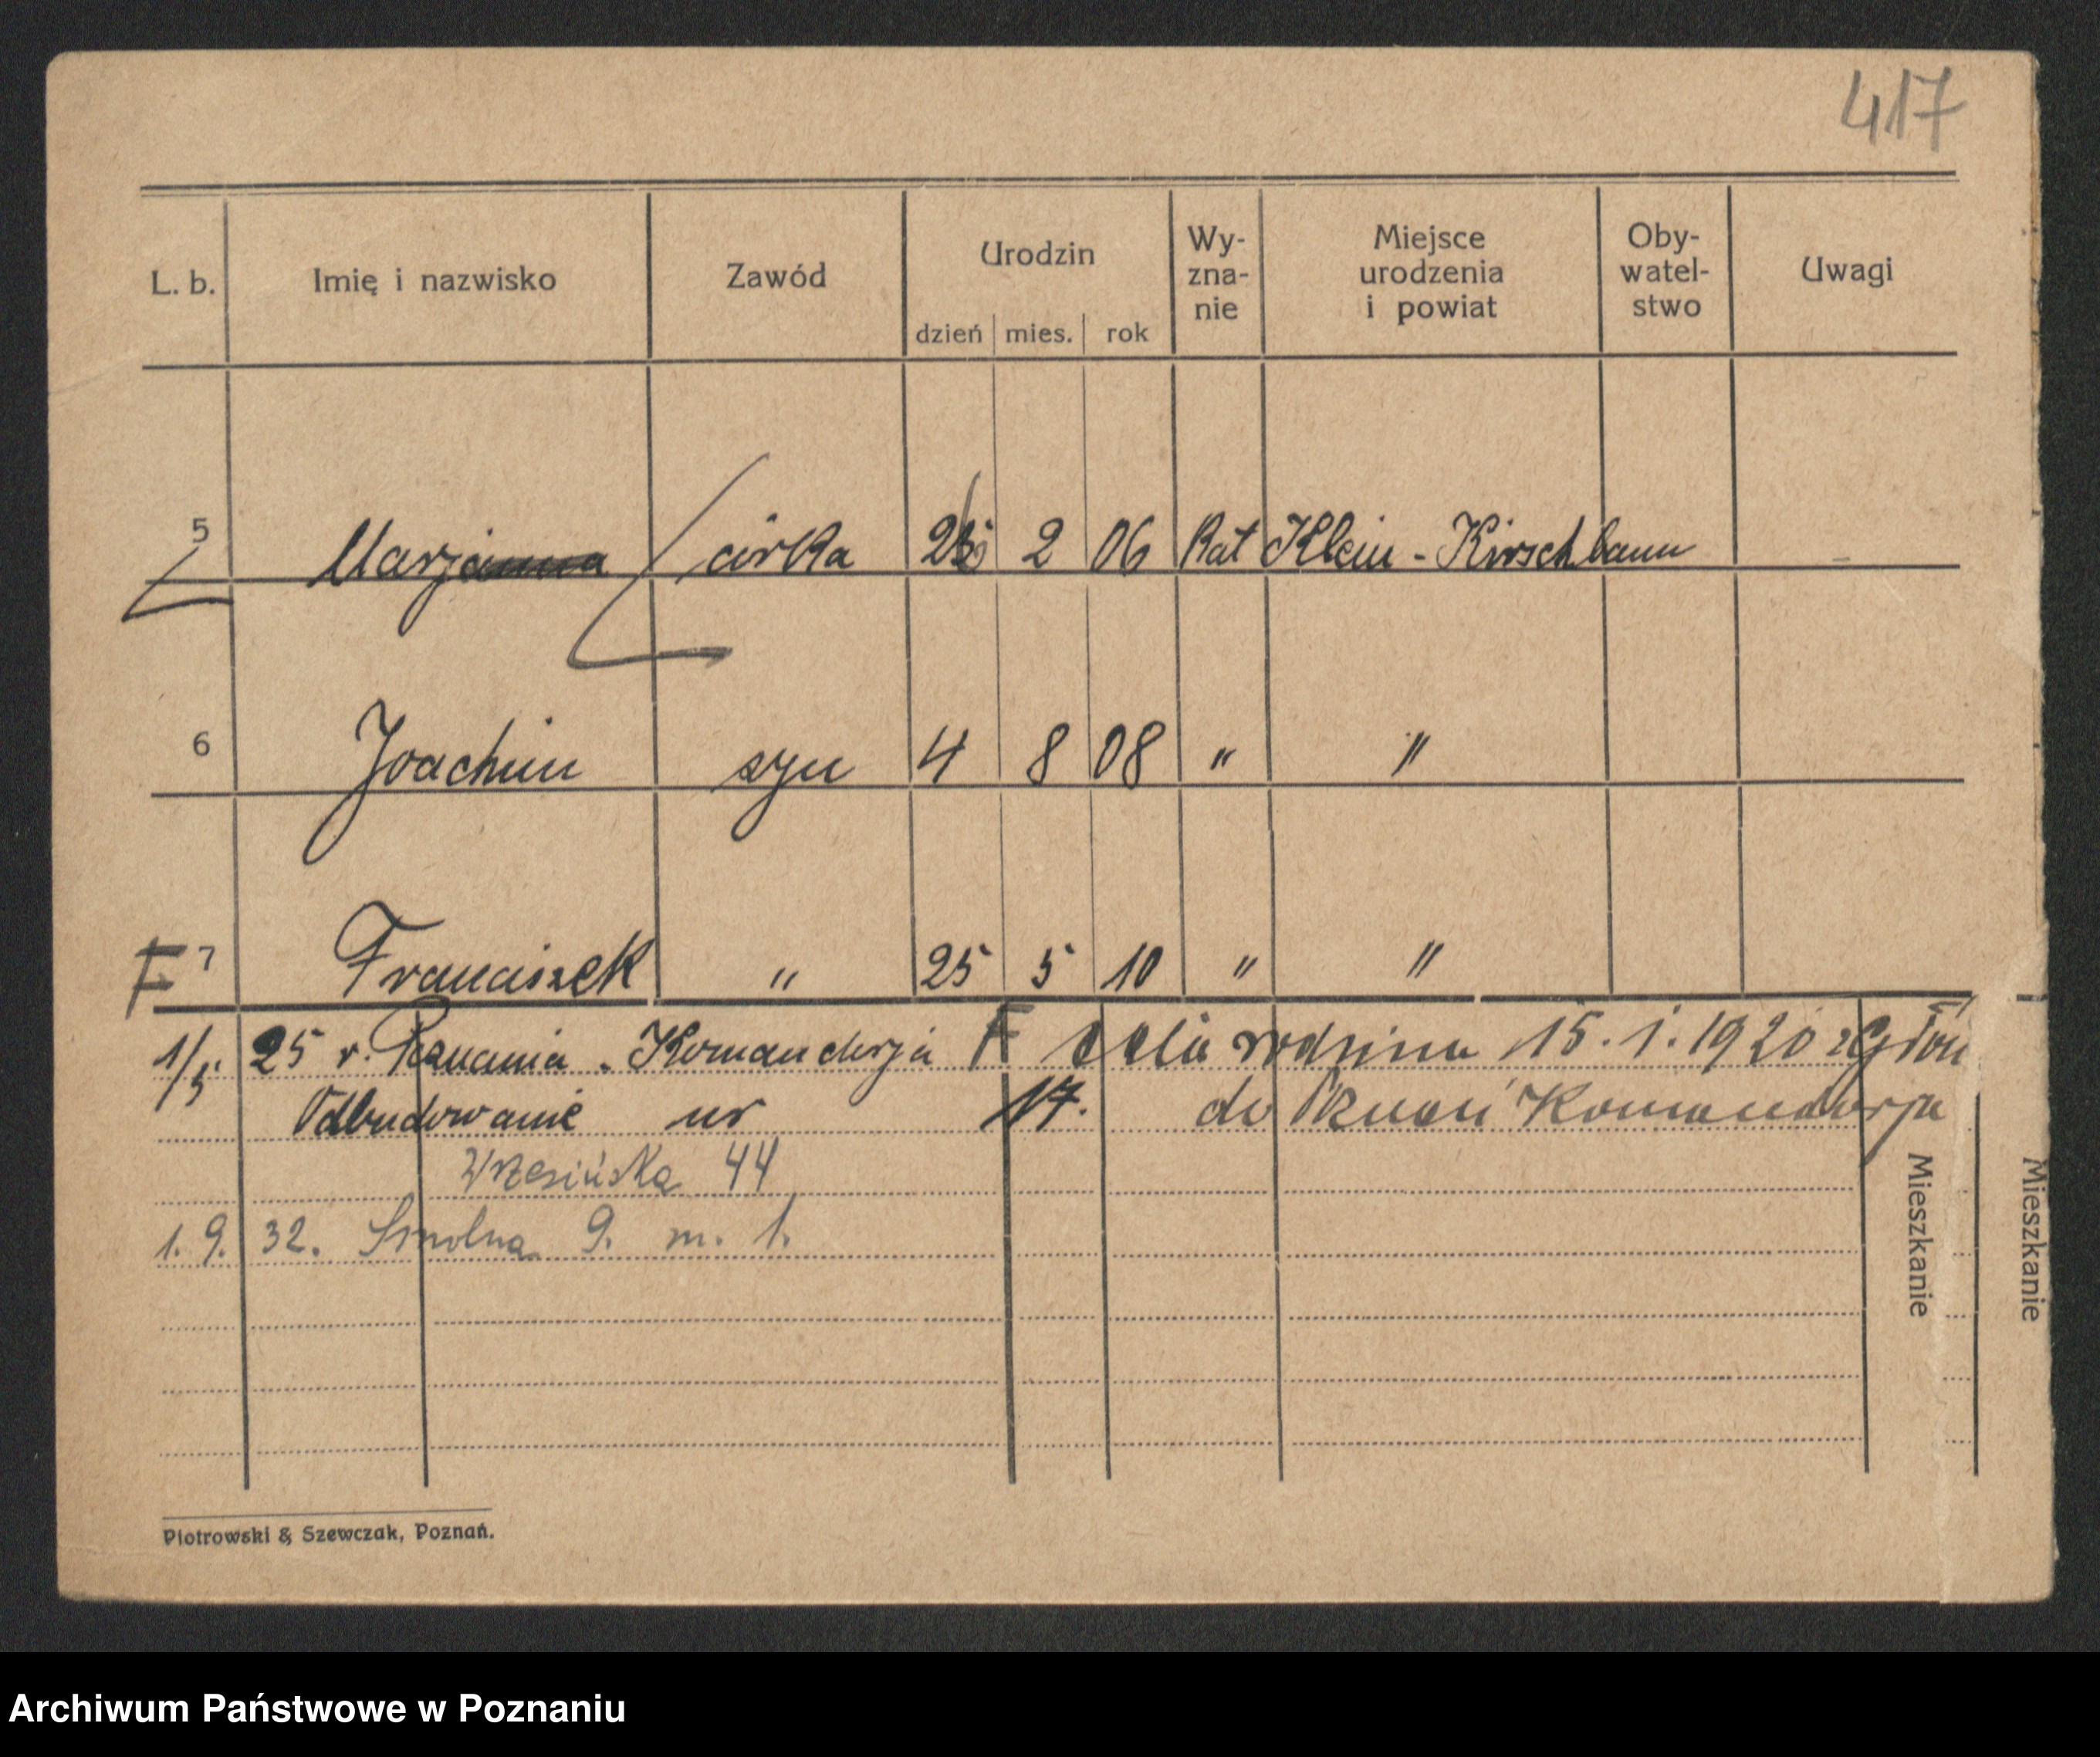 417
L. b. Imię i nazwisko Zawód Urodzin dzień mies. rok Wy-zna-nie Miejsce urodzenia i powiat Oby-watel-stwo Uwagi
5 Marjanna córka 2 06 Kat Klein - Kirschbaum
6 Joachim syn 4 8 08 " "
F 7 Franciszek " 25 5 10 " "
1/5 25 r. - Komanderja F cela rodzina 15. 1. 1920 z Głów
Odbudowanie nr 17. do Komanderja
Wrzesińska 44
1. 9. 32. Smolna 9. m. 1.
Mieszkanie
Mieszkanie
Piotrowski & Szewczak, Poznań.
Archiwum Państwowe w Poznaniu